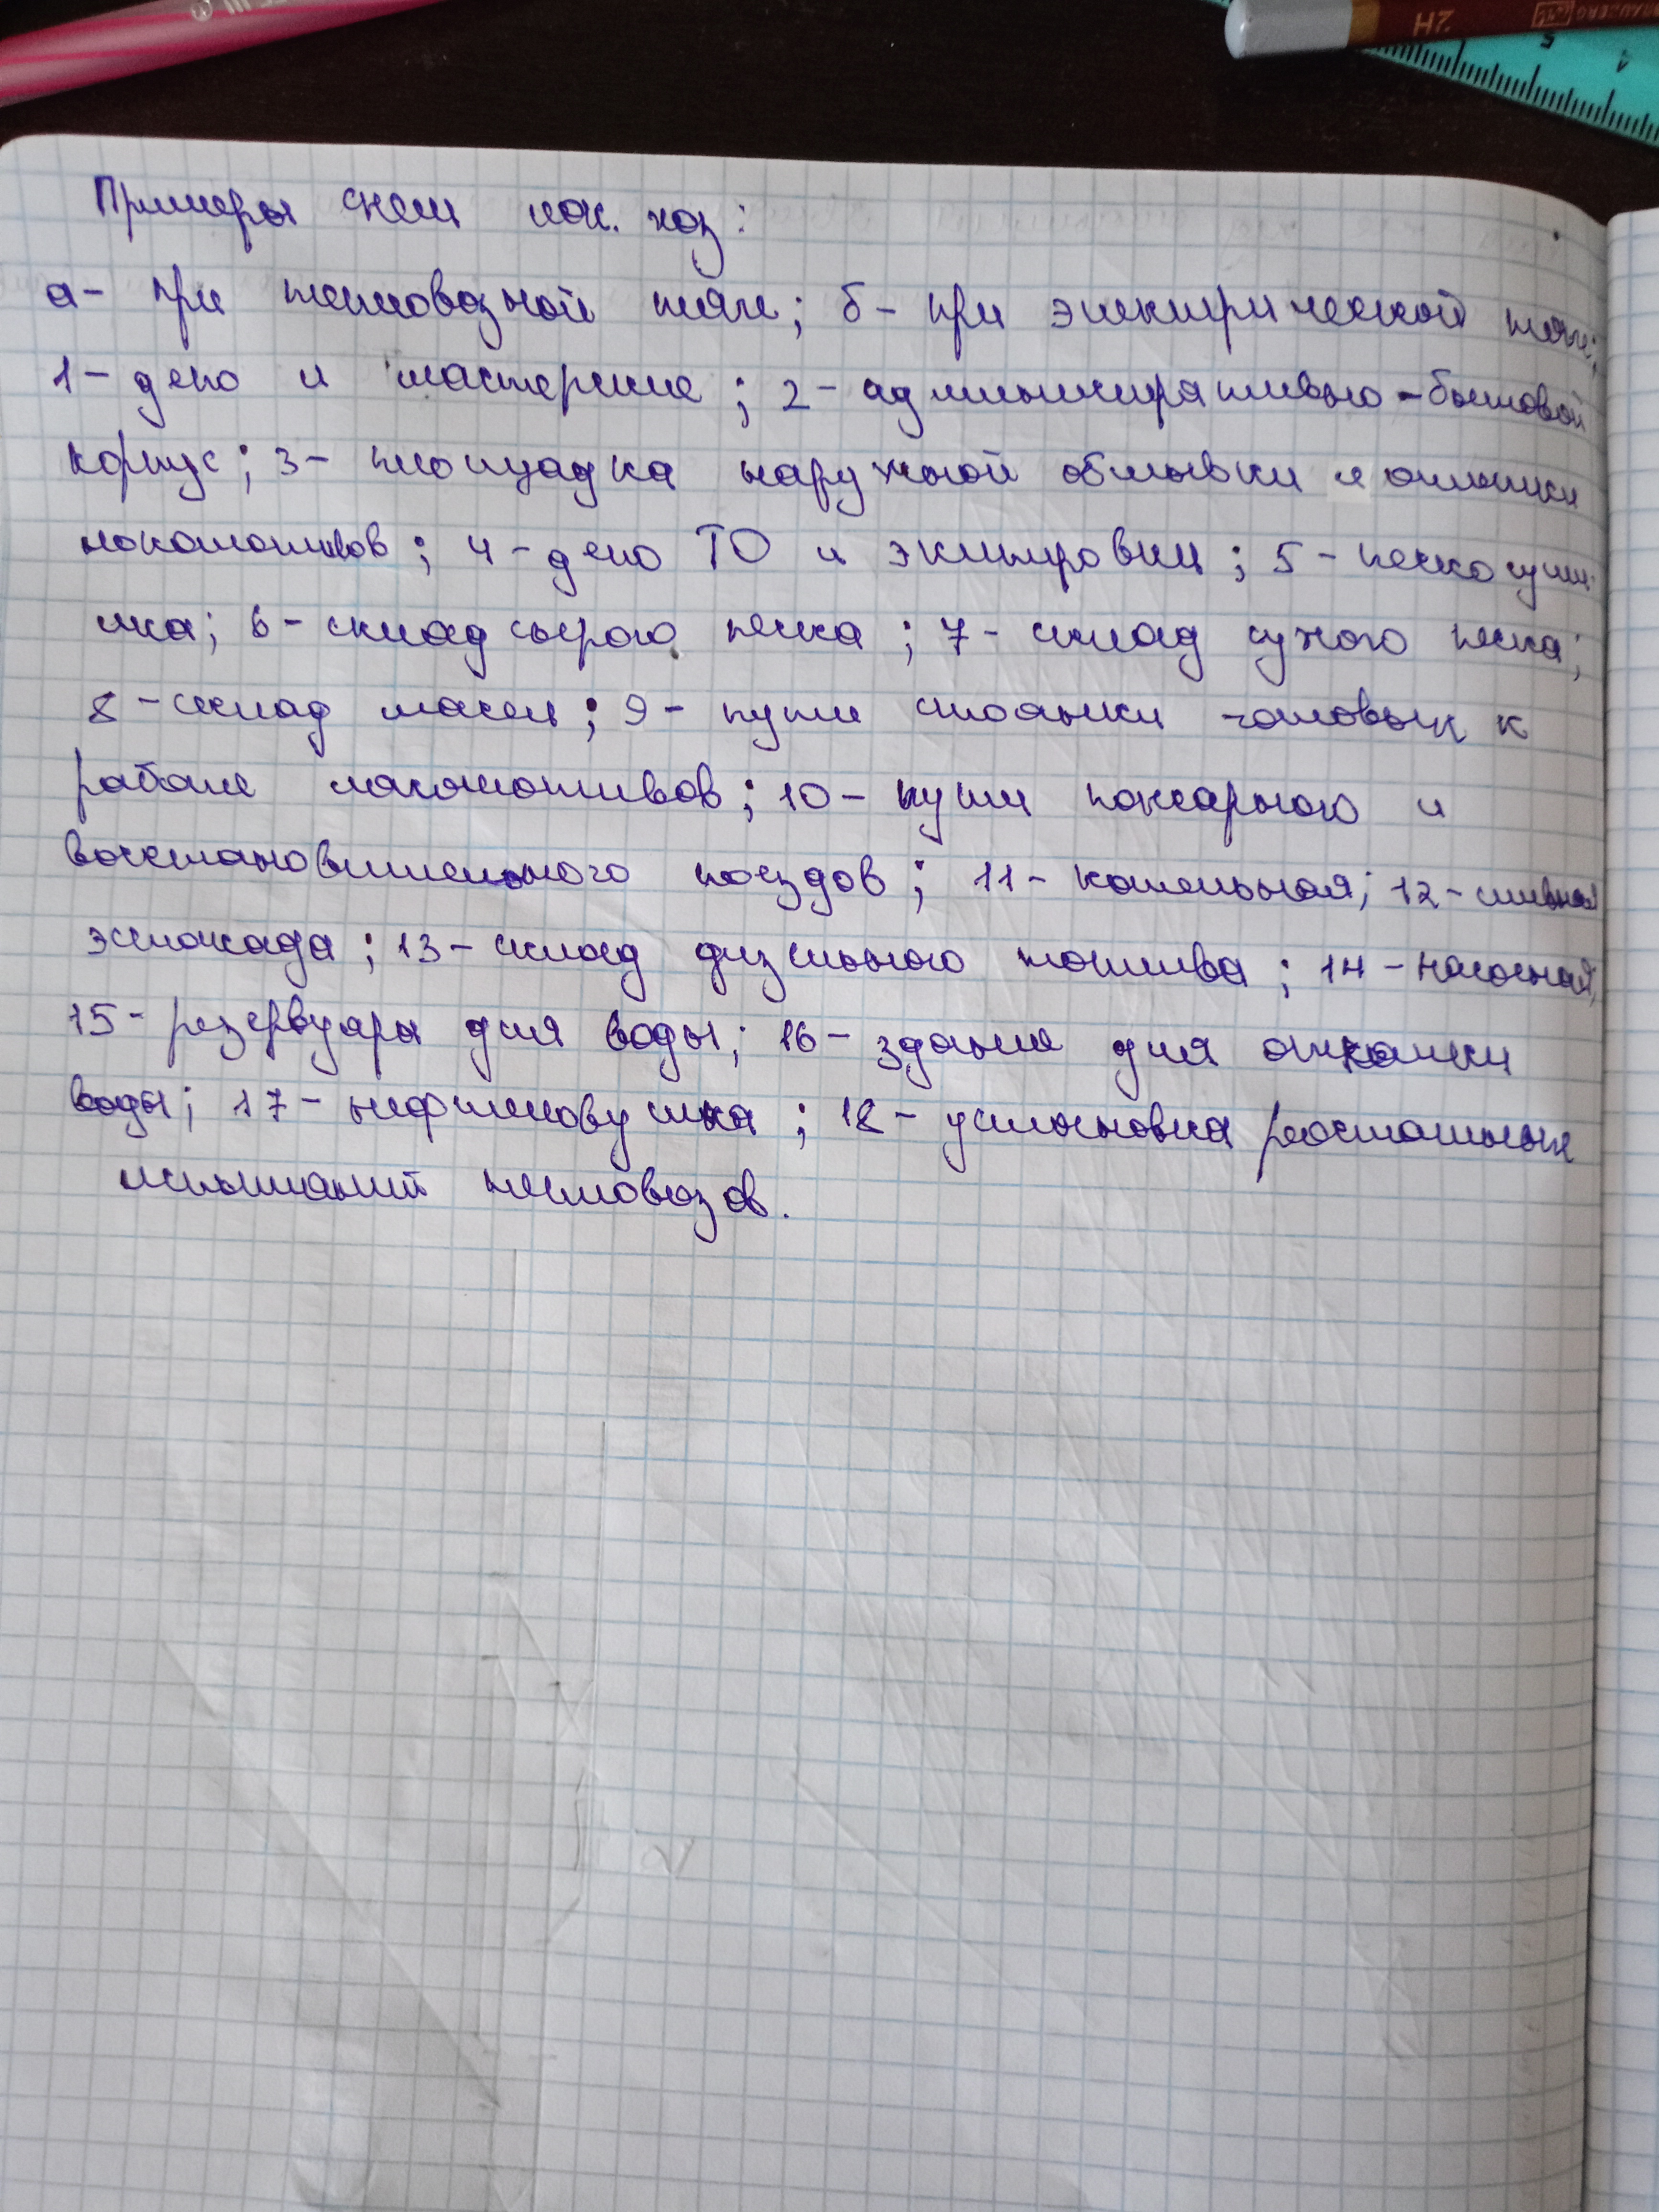 2H
5
4
Примеры схем лок. хоз:
а- при тепловозной тяге; б- при электрической тяге;
1- депо и мастерские; 2- административно-бытовой
корпус; 3- площадка наружной обмывки и очистки
локомотивов; 4- депо ТО и экипировки; 5- пескосуши-
лка; 6- склад сырого песка; 7- склад сухого песка;
8- склад масел; 9- пути стоянки готовых к
работе локомотивов; 10- пути пожарного и
восстановительного поездов; 11- котельная; 12- сливная
эстокада; 13- склад дизельного топлива; 14- насосная;
15- резервуары для воды; 16- здание для откачки
воды; 17- нефтеловушка; 18- установка реостатных
испытаний тепловозов.